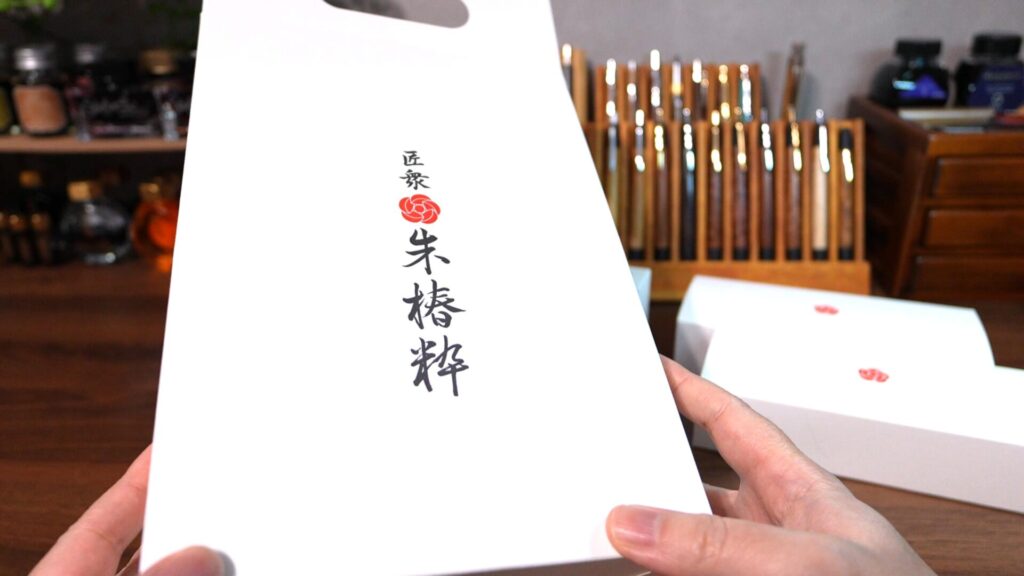 匠衆
朱椿粋